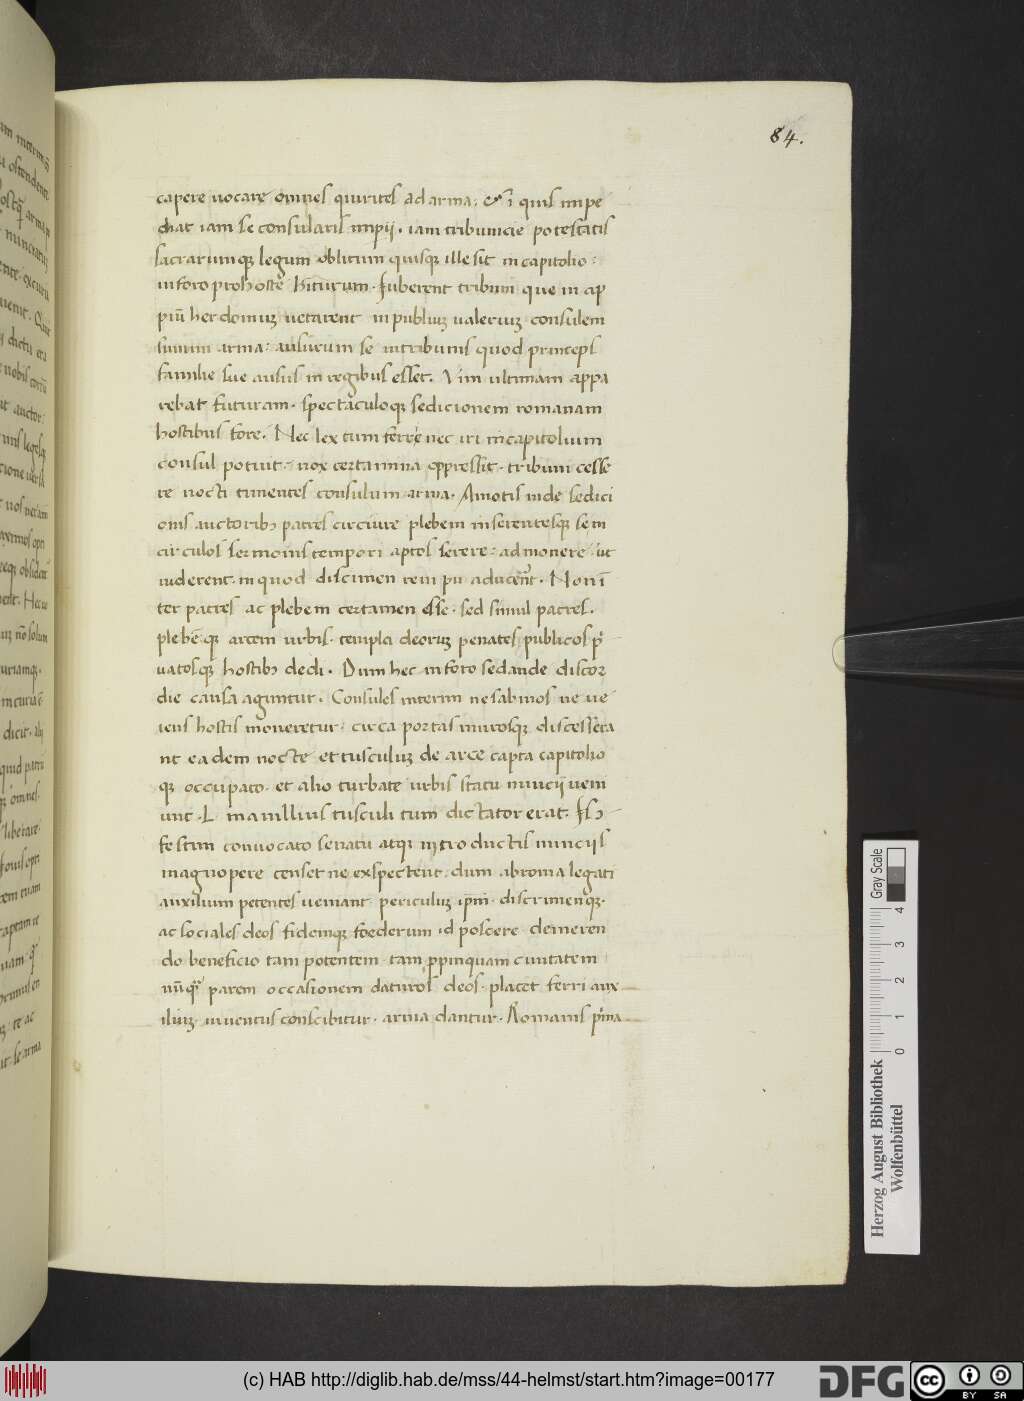 84.
capere uocare omnes quirites ad arma: & ī quis impe
diat iam se consularis impii. iam tribunicie potestatis
sacrarumque legum oblitum quisquis ille sit in capitolio:
in foro pro hoste hiturum. Iuberent tribuni que in ap
piū herdonium uetarent in publium valerium consulem
sumin arma: ausurum se in tribunis quod princeps
familie sue ausus in regibus esset. Vim ultimam appa
rebat futuram. spectaculoque sedicionem romanam
hostibus fore. Nec lex tum ferre nec iri in capitolium
consul potuit. nox certamina oppressit. tribuni cesse
re nocti timentes consulum arma. Amotis inde sedici
onis auctorib; patres circuire plebem inserentesque se in
circulos sermonis tempori aptos serere: admonere ut
uiderent. in quod discrimen rem pu aducerent. Non ī
ter patres ac plebem certamen esse. sed simul patres.
plebēque arcem urbis. templa deorum penates publicos pri
uatosque hostib; dedi. Dum hec in foro sedande discor
die causa aguntur. Consules interim ne sabinos ne ue
iens hostis moueretur. circa portas murosque discessera
nt eadem nocte et tusculum de arce capta capitolio
que occupato. et alio turbate urbis statu nuncii ueni
unt. L manillius tusculi tum dictator erat. Is
festim conuocato senatu atque introductis nunciis
magnopere censet ne exspectent. dum ab roma legati
auxilium petentes ueniant periculum ipm. discrimenque.
ac sociales deos fidemque foederum id poscere demeren
do beneficio tam potentem tam propinquam ciuitatem
nūquam parem occasionem daturos deos. placet ferri aux
ilium. iuuentus conscibitur. arma dantur. Romanis prima
Gray Scale
0 1 2 3 4
Herzog August Bibliothek
Wolfenbüttel
(c) HAB http://diglib.hab.de/mss/44-helmst/start.htm?image=00177
DFG
cc BY SA